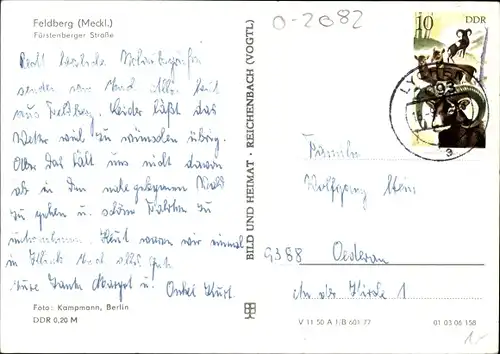 Feldberg (Meckl.)
Fürstenberger Straße
O-2082
10
Recht herzliche Urlaubsgrüße
senden vom Nord alles Zeit
aus Feldberg. Leider läßt das
Wetter viel zu wünschen übrig.
Aber das hält uns nicht davon
ab in den nahe gelegenen Wald
zu gehen u. schöne Fahrten zu
unternehmen. Heut waren wir einmal
in
Eure Tante Margot u. Onkel Kurt.
Foto: Kampmann, Berlin
DDR 0,20 M
BILD UND HEIMAT · REICHENBACH (VOGTL)
LYCHEN
a
Familie
Wolfgang Stein
9388 Oederan
An der Kirche 1
V 11 50 A 1/B 601 77
01 03 06 158